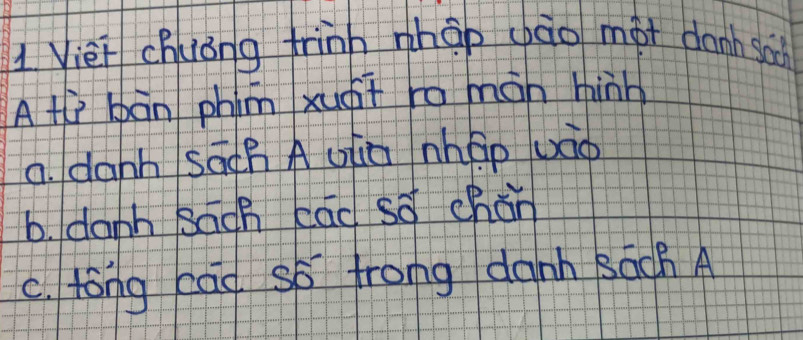 1. Viết chương trình nhập vào một danh sách
A từ bàn phím xuất ra màn hình
a. danh sách A vừa nhập vào
b. danh sách các số chẵn
c. tổng các số trong danh sách A